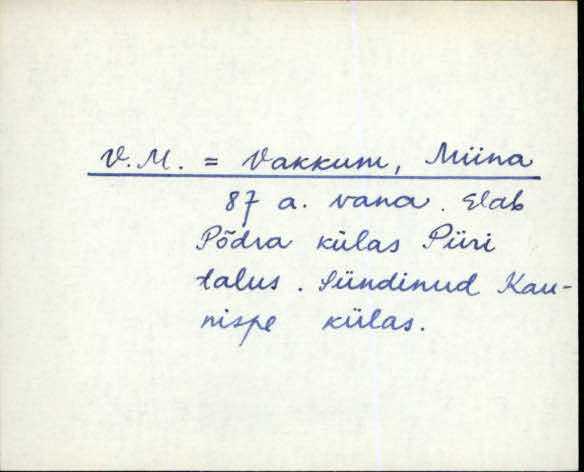 V.M. = Vakkum, Miina
87 a. vana. Elab
Põdra külas Piiri
talus. Sündinud Kau-
nispe külas.